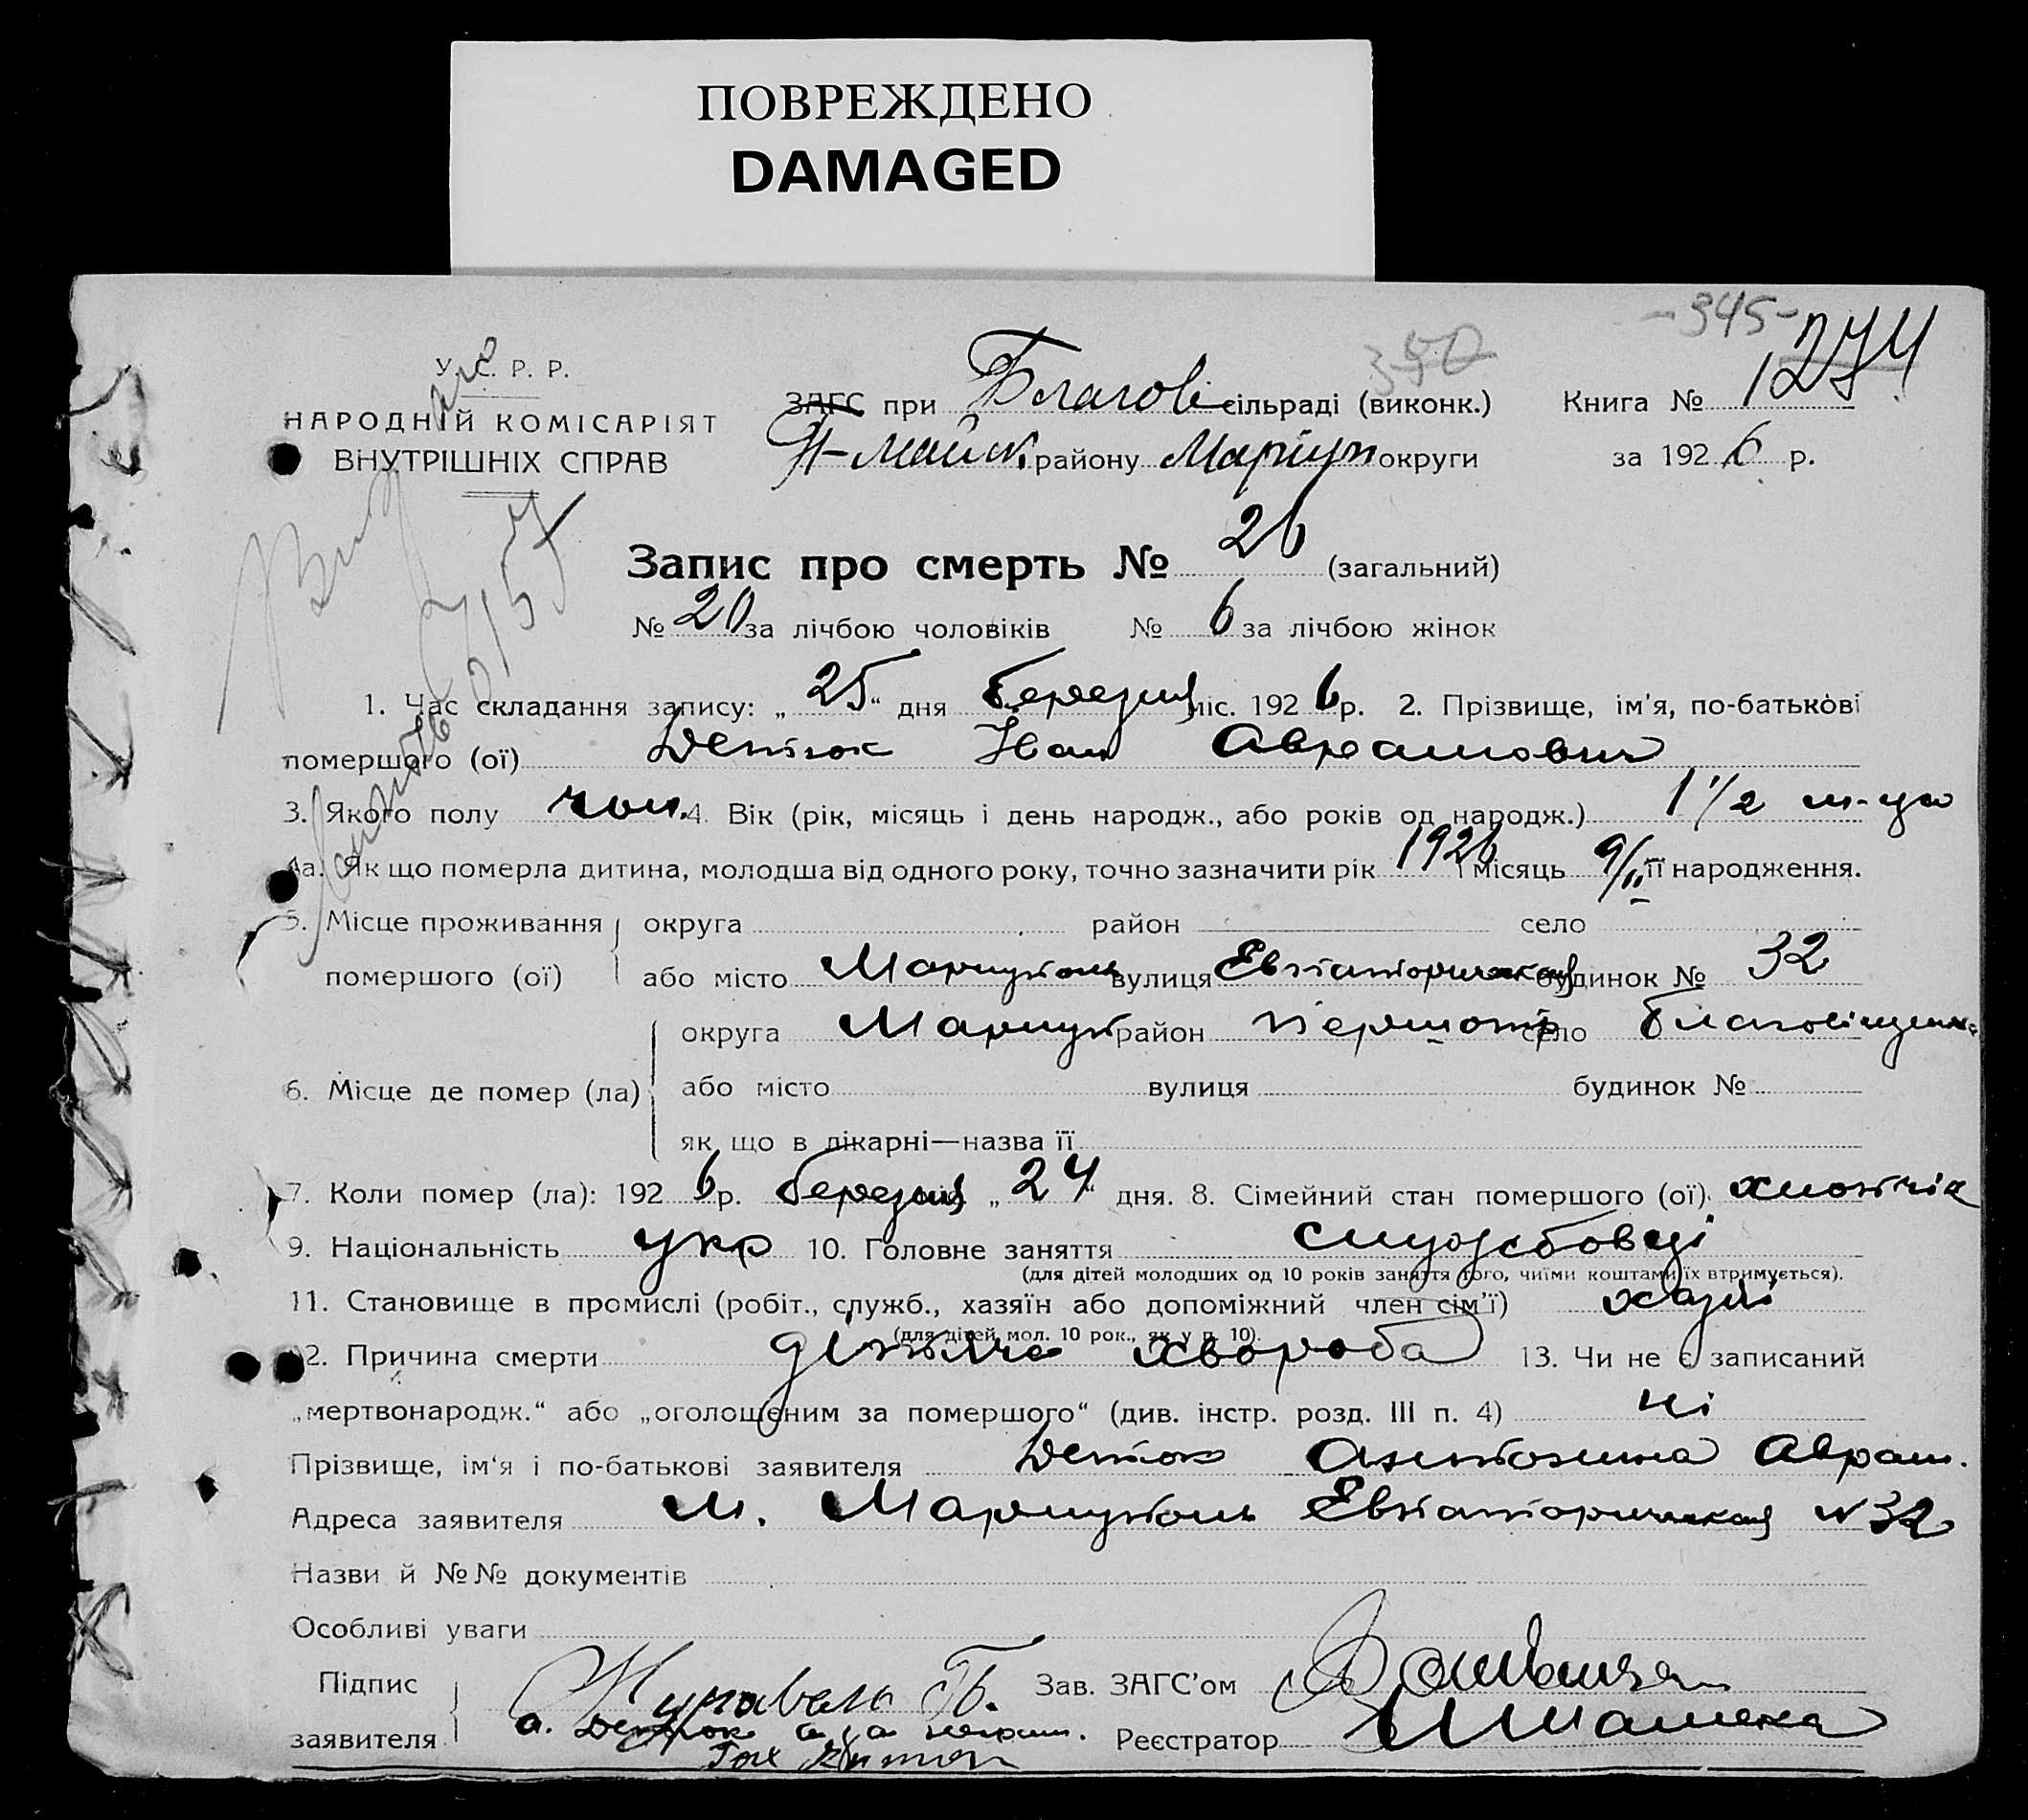 ПОВРЕЖДЕНО
DAMAGED
-345-
350
1274
У. С. Р. Р.
НАРОДНІЙ КОМІСАРІЯТ
ВНУТРІШНІХ СПРАВ
ЗАГС при Благові сільраді (виконк.) Книга №
П-майск. району Маріуп округи за 1926 р.
Запис про смерть № 26 (загальний)
№ 20 за лічбою чоловіків № 6 за лічбою жінок
1. Час складання запису: „25“ дня березня міс. 1926 р. 2. Прізвище, ім'я, по-батькові
помершого (ої) Іван Аврамович
3. Якого полу чол. 4. Вік (рік, місяць і день народж., або років од народж.) 1 1/2 м-ця
4а. Як що померла дитина, молодша від одного року, точно зазначити рік 1926 і місяць 9/II її народження.
5. Місце проживання округа район село
помершого (ої) або місто Маріуполь вулиця Евпаторийская будинок № 32
округа Маріуп район Першотр село Благовіщенка
6. Місце де помер (ла) або місто вулиця будинок №
як що в лікарні—назва її
7. Коли помер (ла): 1926 р. березня „24“ дня. 8. Сімейний стан помершого (ої) хлопчик
9. Національність укр 10. Головне заняття службовці
(для дітей молодших од 10 років заняття того, чиїми коштами їх втримується).
11. Становище в промислі (робіт., служб., хазяїн або допоміжний член сім'ї)
(для дітей мол. 10 рок., як у п. 10).
12. Причина смерти дитяча хвороба 13. Чи не є записаний
„мертвонародж.“ або „оголошеним за помершого“ (див. інстр. розд. III п. 4) ні
Прізвище, ім'я і по-батькові заявителя Антонина Аврам.
Адреса заявителя м. Маріуполь Евпаторийская № 32
Назви й №№ документів
Особливі уваги
Підпис Журавель Зав. ЗАГС'ом
заявителя Реєстратор